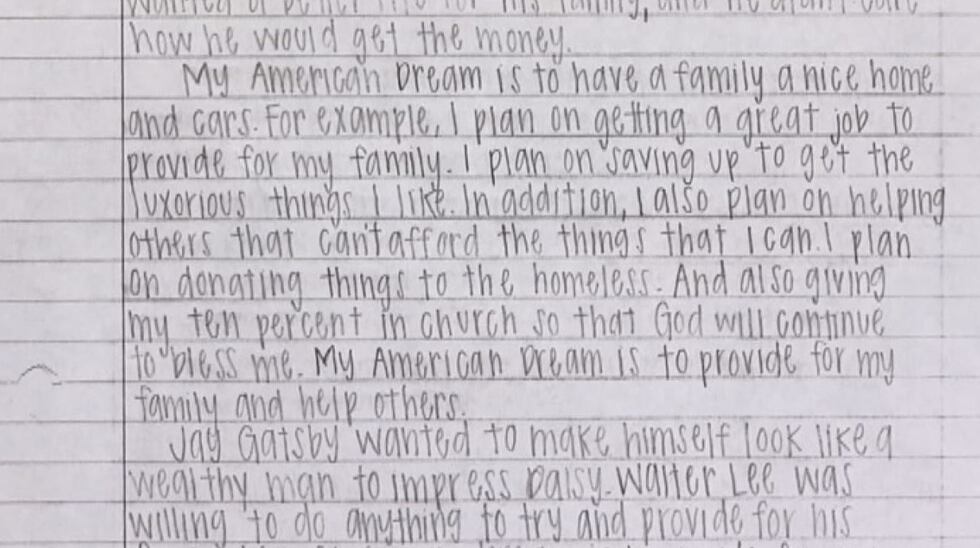 wanted a better life for his family, and he didn't care
how he would get the money.
My American Dream is to have a family a nice home
and cars. For example, I plan on getting a great job to
provide for my family. I plan on saving up to get the
luxorious things I like. In addition, I also plan on helping
others that can't afford the things that I can. I plan
on donating things to the homeless. And also giving
my ten percent in church so that God will continue
to bless me. My American Dream is to provide for my
family and help others.
Jay Gatsby wanted to make himself look like a
wealthy man to impress Daisy. Walter Lee was
willing to do anything to try and provide for his